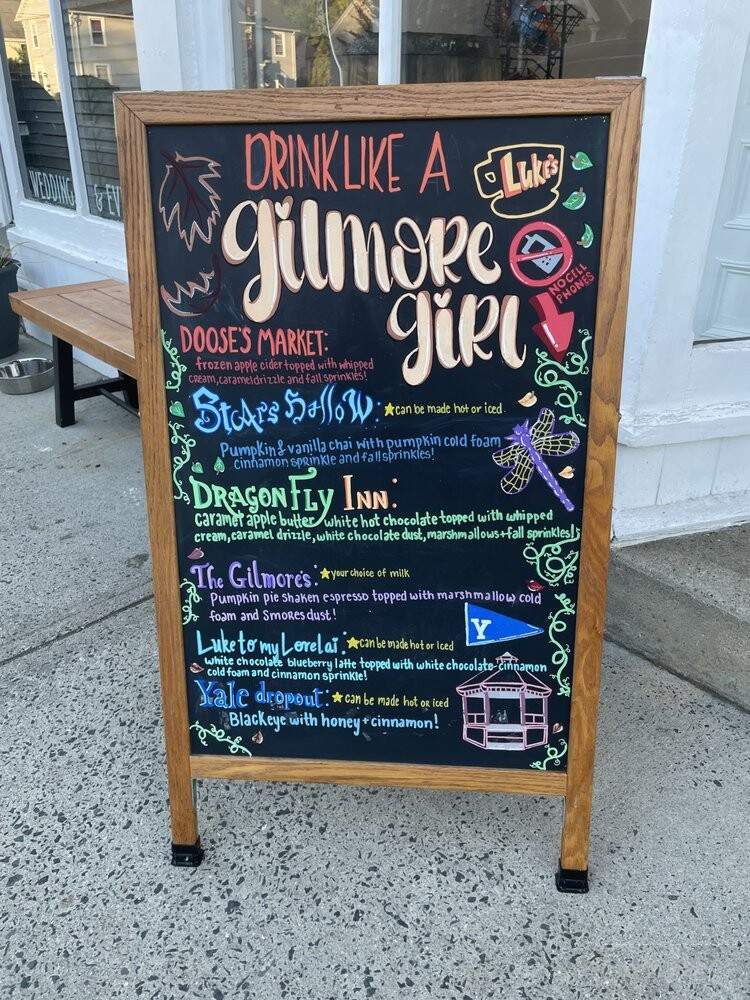 WEDDING
& EV
DRINK LIKE A
Luke's
gilmore
girl
NO CELL
PHONES
DOOSE'S MARKET:
frozen apple cider topped with whipped
cream, caramel drizzle and fall sprinkles!
Stars Hollow: can be made hot or iced.
Pumpkin & vanilla chai with pumpkin cold foam
cinnamon sprinkle and fall sprinkles!
DRAGONFLY INN:
caramel apple butter, white hot chocolate topped with whipped
cream, caramel drizzle, white chocolate dust, marshmallows + fall sprinkles!
The Gilmore's: your choice of milk
Pumpkin pie shaken espresso topped with marshmallow cold
foam and Smores dust!
Y
Luke to my Lorelai: can be made hot or iced
white chocolate blueberry latte topped with white chocolate-cinnamon
cold foam and cinnamon sprinkle!
Yale dropout: can be made hot or iced
Blackeye with honey + cinnamon!